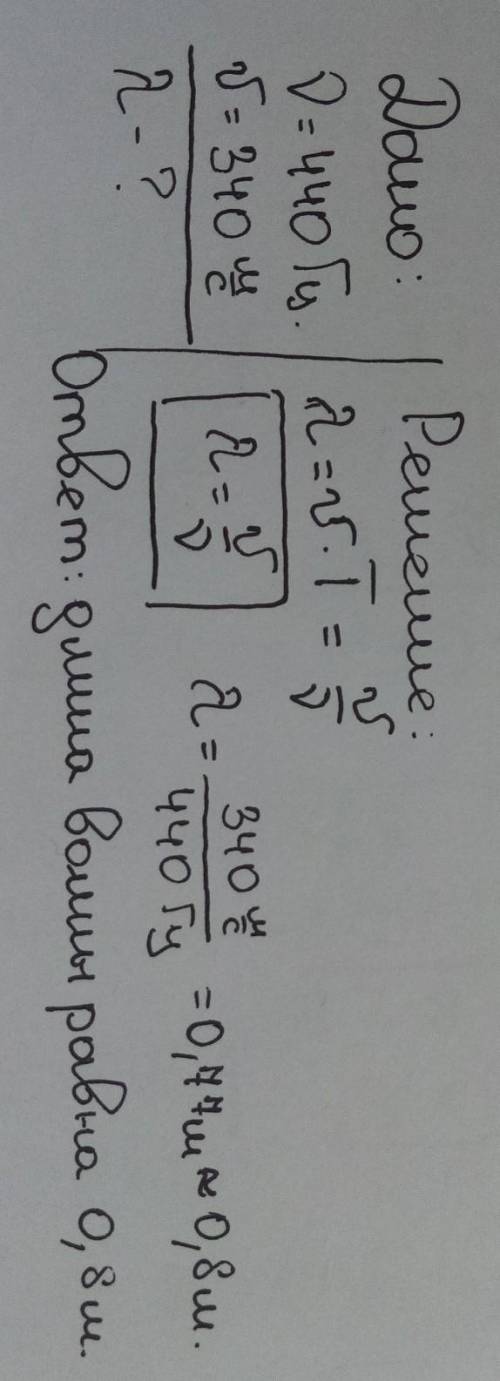 Дано:
ν = 440 Гц.
υ = 340 м/с
λ - ?
Решение:
λ = υ · T = υ/ν
λ = υ/ν
λ = 340 м/с / 440 Гц = 0,77 м ≈ 0,8 м.
Ответ: длина волны равна 0,8 м.